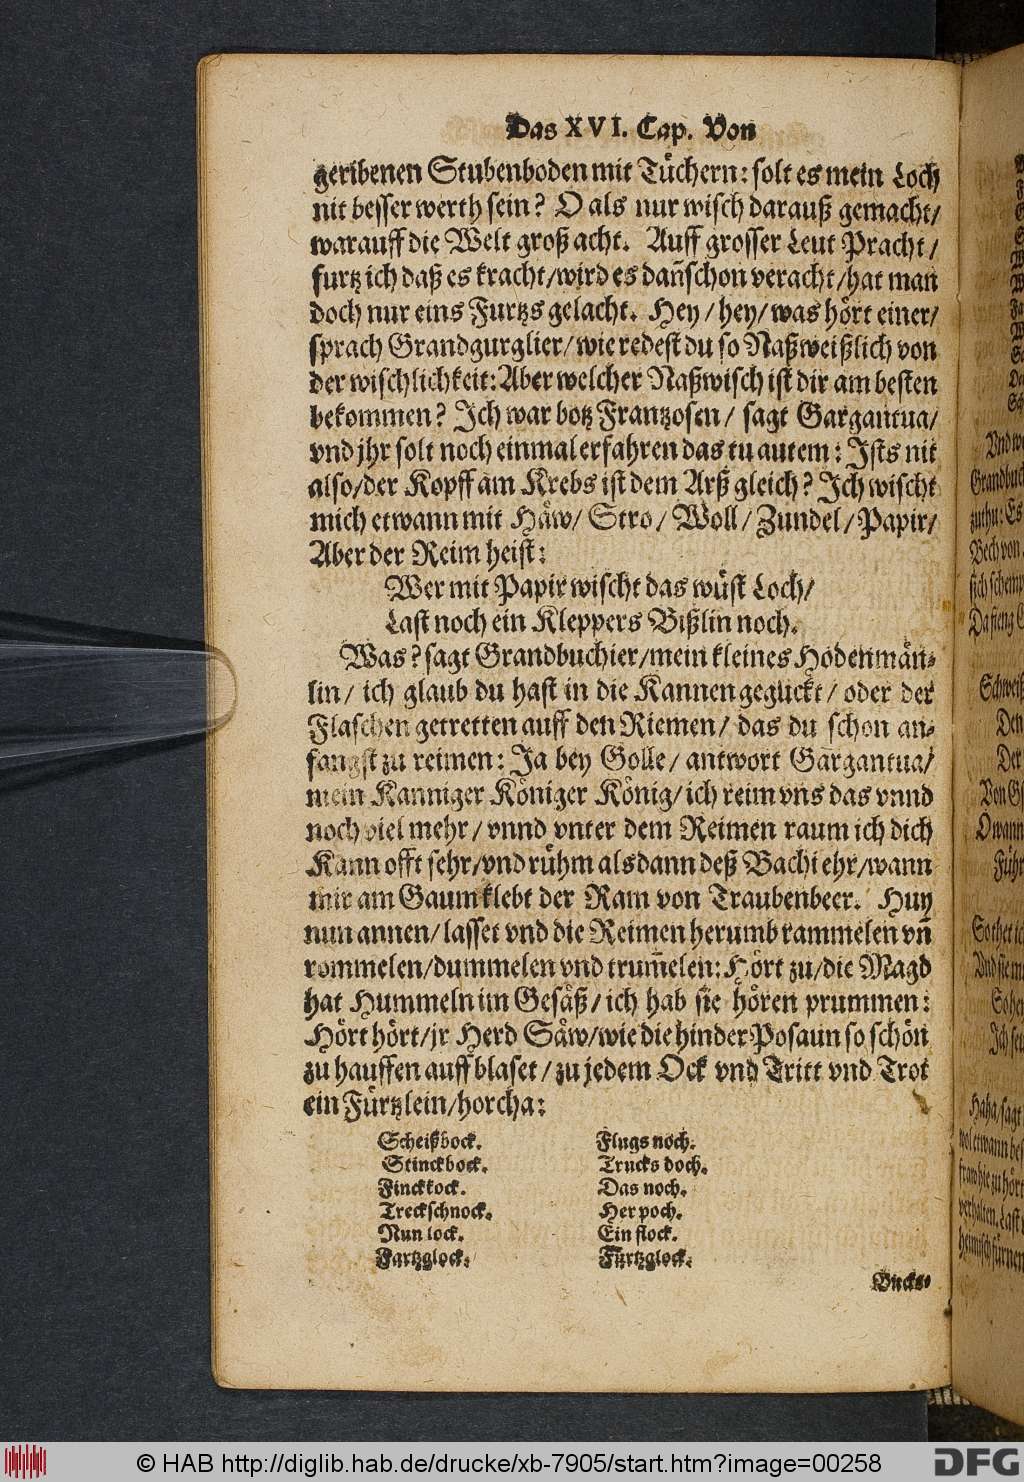 Das XVI. Cap. Von
geribenen Stubenboden mit Tüchern: solt es mein Loch
nit besser werth sein? O als nur wisch darauß gemacht/
warauff die Welt groß acht. Auff grosser Leut Pracht/
furtz ich daß es kracht/wird es dañ schon veracht/hat man
doch nur eins Furtzs gelacht. Hey/hey/was hört einer/
sprach Grandgurglier/wie redest du so Naßweißlich von
der wischlichkeit: Aber welcher Naßwisch ist dir am besten
bekommen? Ich war botz Frantzosen/ sagt Gargantua/
vnd jhr solt noch einmal erfahren das tu autem: Ists nit
also/der Kopff am Krebs ist dem Arß gleich? Ich wischt
mich etwann mit Häw/ Stro/ Woll/ Zundel/ Papir/
Aber der Reim heist:
Wer mit Papir wischt das wüst Loch/
Last noch ein Kleppers Bißlin noch.
Was? sagt Grandbuchier/mein kleines Hodenmän-
lin/ ich glaub du hast in die Kannen geguckt/ oder der
Flaschen getretten auff den Riemen/ das du schon an-
fangst zu reimen: Ja bey Golle/ antwort Gargantua/
mein Kanniger Königer König/ich reim vns das vnnd
noch viel mehr/ vnnd vnter dem Reimen raum ich dich
Kann offt sehr/vnd rühm alsdann deß Bachi ehr/wann
mir am Gaum klebt der Ram von Traubenbeer. Huy
nun annen/lasset vnd die Reimen herumb rammelen vñ
rommelen/dummelen vnd trum̃elen: Hört zu/die Magd
hat Hummeln im Gesäß/ich hab sie hören prummen:
Hört hört/jr Herd Säw/wie die hinder Posaun so schön
zu hauffen auff blaset/zu jedem Ock vnd Tritt vnd Trot
ein Fürtzlein/horcha:
Scheißbock. Flugs noch.
Stinckbock. Trucks doch.
Finckkock. Das noch.
Treckschnock. Her poch.
Nun lock. Ein flock.
Fartzglock. Fürtzglock.
Bucks-
Schweiß
Den
Der
Führ
© HAB http://diglib.hab.de/drucke/xb-7905/start.htm?image=00258
DFG